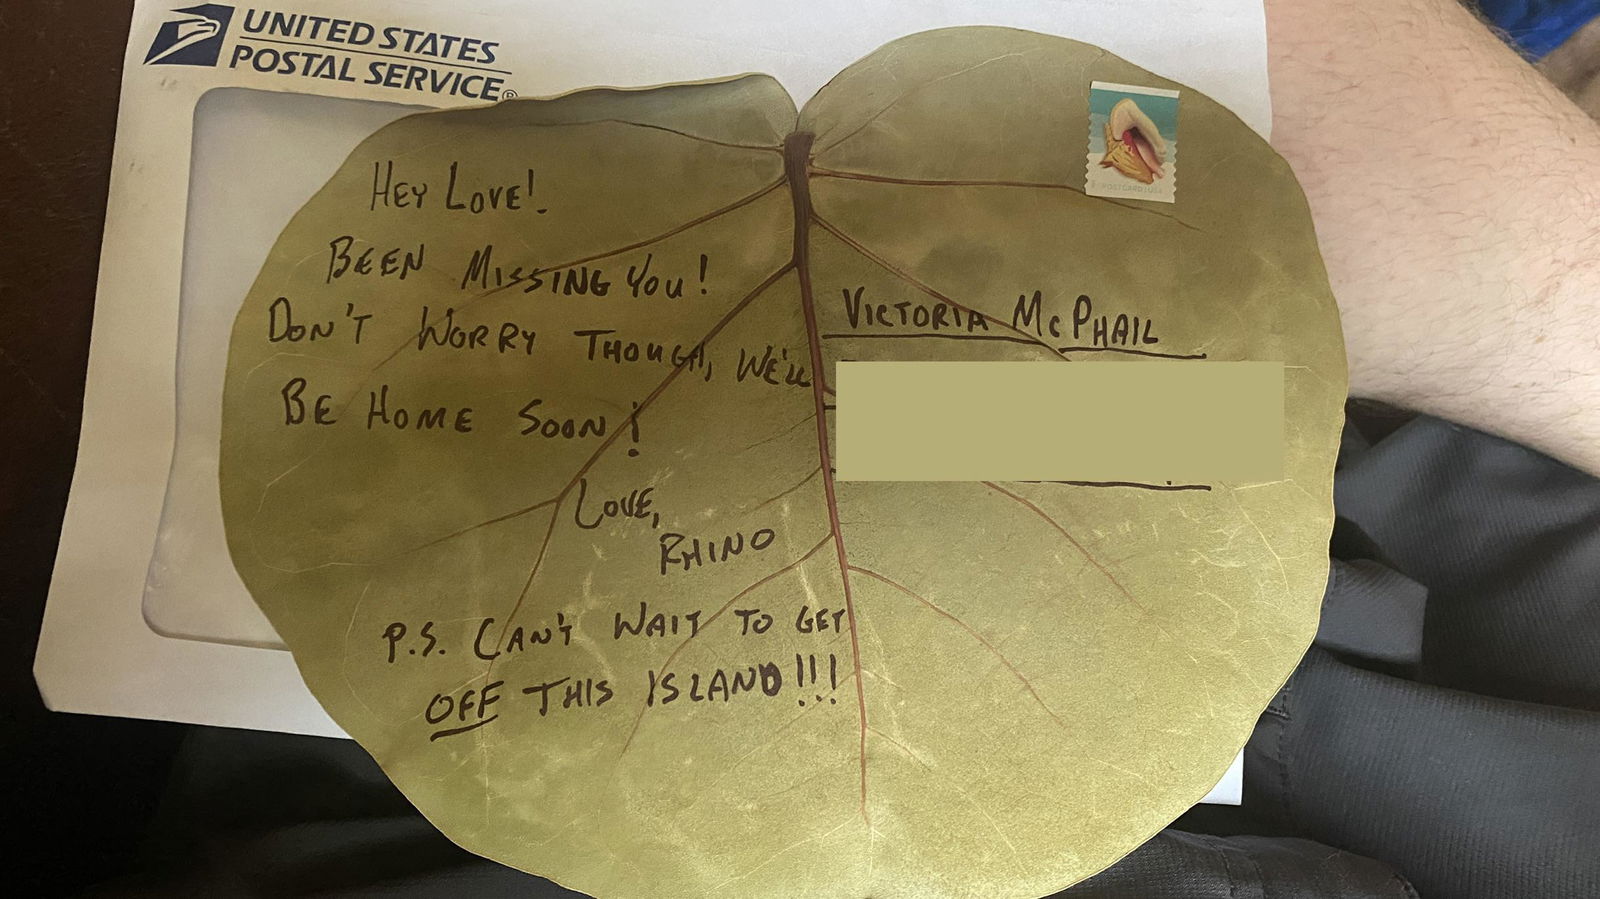 UNITED STATES
POSTAL SERVICE®
HEY LOVE!
BEEN MISSING YOU!
DON'T WORRY THOUGH, WE'LL
BE HOME SOON!
LOVE,
RHINO
P.S. CAN'T WAIT TO GET
OFF THIS ISLAND!!!
POSTCARD USA
VICTORIA McPHAIL